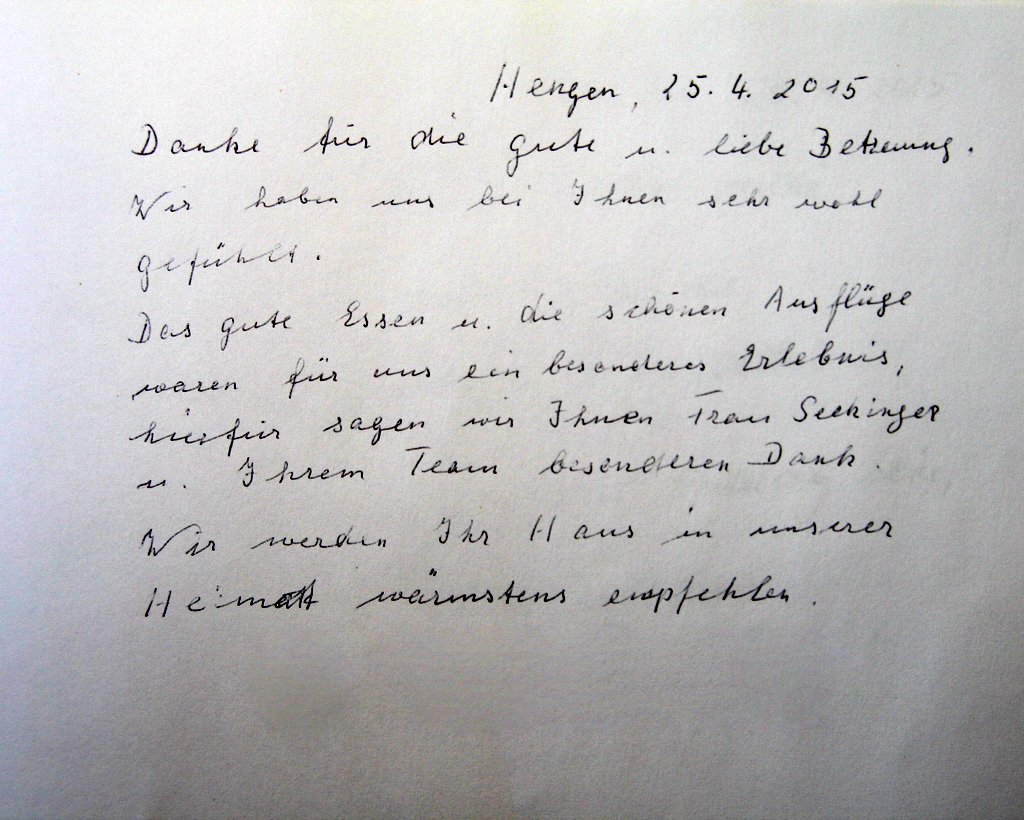 Hengen, 25.4.2015
Danke für die gute u. liebe Betreuung.
Wir haben uns bei Ihnen sehr wohl
gefühlt.
Das gute Essen u. die schönen Ausflüge
waren für uns ein besonderes Erlebnis,
hierfür sagen wir Ihnen Frau Seckinger
u. Ihrem Team besonderen Dank.
Wir werden Ihr Haus in unserer
Heimat wärmstens empfehlen.